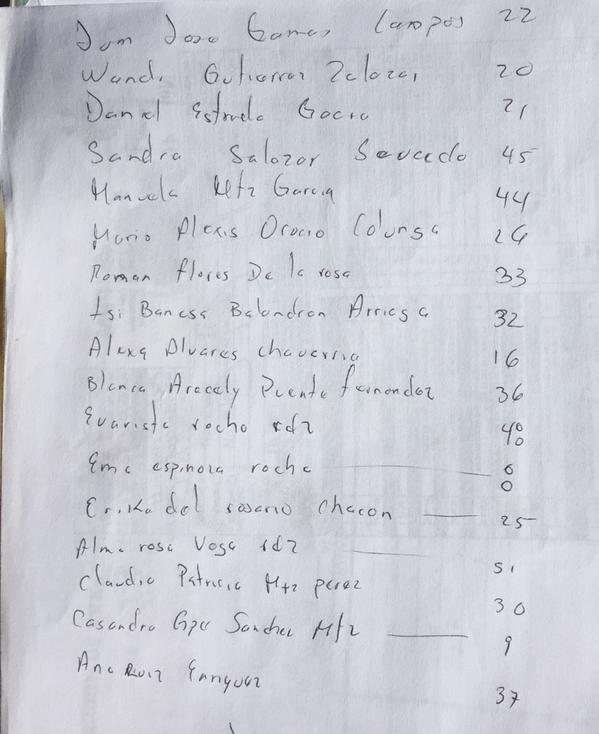 Juan Jose Gamez Campos 22
Wendi Gutierrez 20
Daniel Estrada 21
Sandra Salazar Saucedo 45
Manuela Mtz Garcia 44
Mario Alexis Orocio Colunga 24
Roman flores De la rosa 33
Banessa Balandran Arriaga 32
Alexa Alvares chaverria 16
Blanca Aracely Puente fernandez 36
Evarista rocha rdz
Ema espinoza rocha
Erika del rosario Chacon 25
Alma rosa Vega rdz 51
Claudia Patricia Mtz perez 30
Casandra Gpe Sanchez Mtz 9
Ana Ruiz Enriquez 37